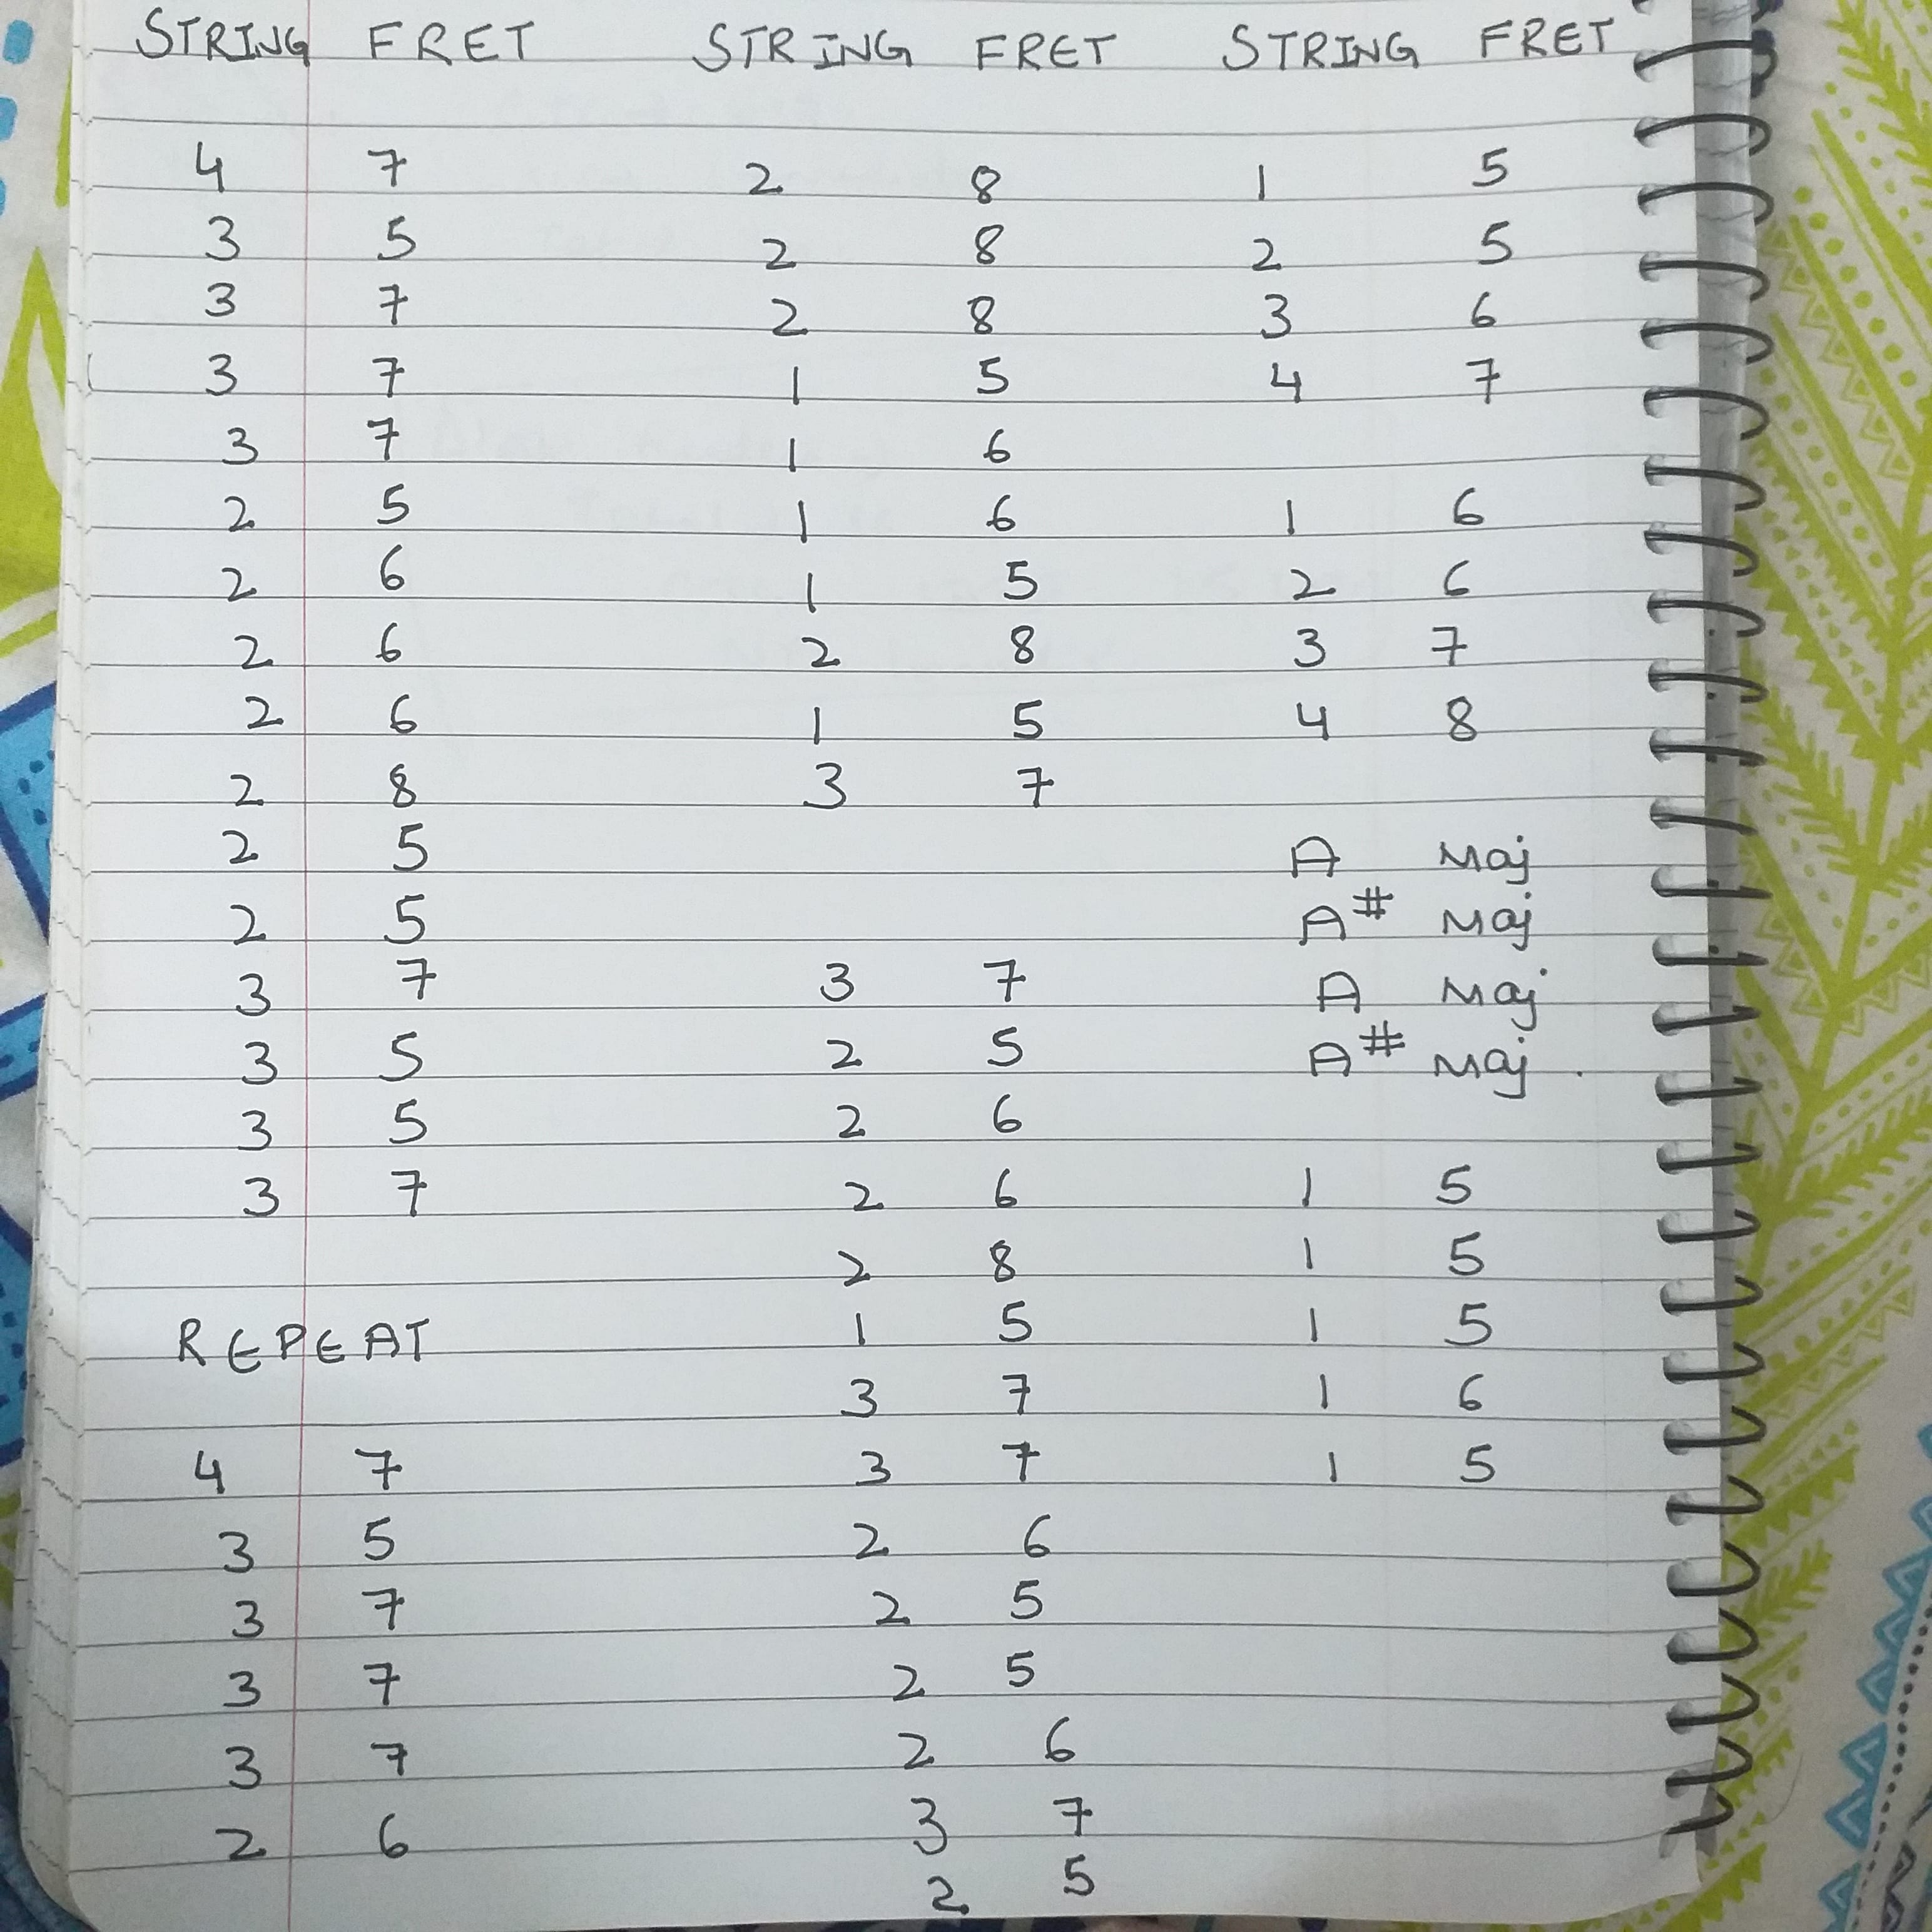 STRING FRET
4 7
3 5
3 7
3 7
3 7
2 5
2 6
2 6
2 6
2 8
2 5
2 5
3 7
3 5
3 5
3 7
REPEAT
4 7
3 5
3 7
3 7
3 7
2 6
STRING FRET
2 8
2 8
2 8
1 5
1 6
1 6
1 5
2 8
1 5
3 7
3 7
2 5
2 6
2 6
2 8
1 5
3 7
3 7
2 6
2 5
2 5
2 6
3 7
2 5
STRING FRET
1 5
2 5
3 6
4 7
1 6
2 6
3 7
4 8
A Maj
A# Maj
A Maj
A# Maj.
1 5
1 5
1 5
1 6
1 5